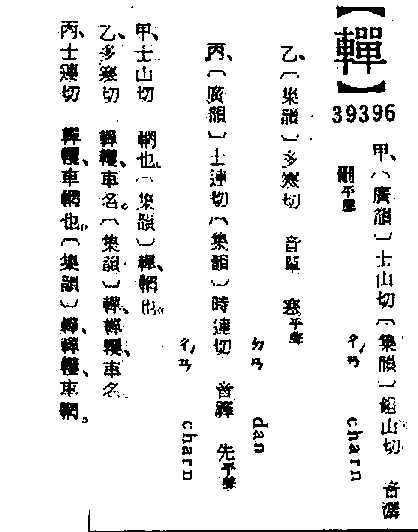 【轏】
39396
甲、〔廣韻〕士山切〔集韻〕鉏山切 音潺
刪平聲 ㄔㄢˊ charn
乙、〔集韻〕多寒切 音單 寒平聲
ㄉㄢ dan
丙、〔廣韻〕士連切〔集韻〕時連切 音蟬 先平聲
ㄔㄢˊ charn
甲、士山切 輞也。〔集韻〕轏、輞也。
乙、多寒切 轏䡵、車名。〔集韻〕轏、轏䡵、車名
丙、士連切 轏䡵、車輞也。〔集韻〕轏、轏䡵、車輞。